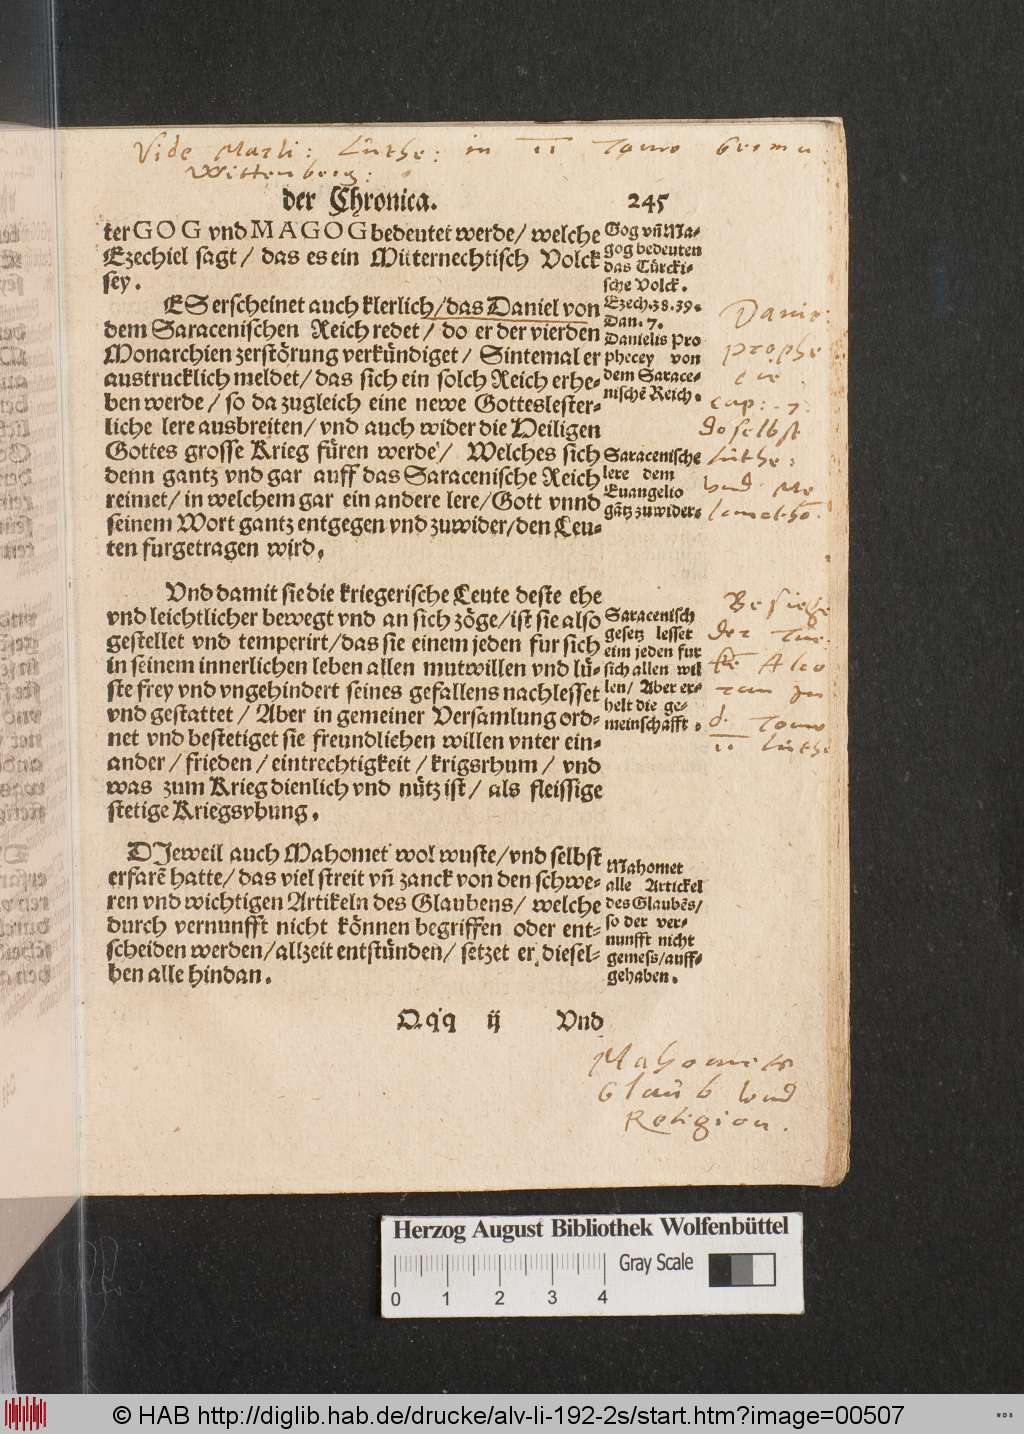 Vide Marti: Luthe: in II Tomo Germa:
Wittenberg:
der Chronica. 245
ter GOG vnd MAGOG bedeutet werde/ welche
Ezechiel sagt/ das es ein Mitternechtisch Volck
sey.
ES erscheinet auch klerlich/das Daniel von
dem Saracenischen Reich redet/ do er der vierden
Monarchien zerstörung verkündiget/ Sintemal er
austrucklich meldet/das sich ein solch Reich erhe-
ben werde/ so da zugleich eine newe Gotteslester-
liche lere ausbreiten/ vnd auch wider die Heiligen
Gottes grosse Krieg füren werde/ Welches sich
denn gantz vnd gar auff das Saracenische Reich
reimet/ in welchem gar ein andere lere/Gott vnnd
seinem Wort gantz entgegen vnd zuwider/den Leu-
ten furgetragen wird.
Gog vñ Ma-
gog bedeuten
das Türcki-
sche Volck.
Ezech.38.39.
Dan. 7.
Danielis Pro
phecey von
dem Sarace-
nischē Reich.
Saracenische
lere dem
Euangelio
gātz zuwider.
Danie:
prophe
cie.
cap: 7.
doselbst
Luthe:
vnd Me
lancthō.
Vnd damit sie die kriegerische Leute deste ehe
vnd leichtlicher bewegt vnd an sich zöge/ist sie also
gestellet vnd temperirt/das sie einem jeden fur sich
in seinem innerlichen leben allen mutwillen vnd lü-
ste frey vnd vngehindert seines gefallens nachlesset
vnd gestattet/ Aber in gemeiner Versamlung ord-
net vnd bestetiget sie freundlichen willen vnter ein-
ander/ frieden/ eintrechtigkeit/ krigsrhum/ vnd
was zum Krieg dienlich vnd nütz ist/ als fleissige
stetige Kriegsybung.
Saracenisch
gesetz lesset
eim jeden fur
sich allen wil
len/ Aber er-
helt die ge-
meinschafft.
Besiehe
der Tür
Alco
ran Jn
d. Tomo
II Luthe
DJeweil auch Mahomet wol wuste/vnd selbst
erfarē hatte/das viel streit vñ zanck von den schwe-
ren vnd wichtigen Artikeln des Glaubens/ welche
durch vernunfft nicht können begriffen oder ent-
scheiden werden/allzeit entstünden/ setzet er diesel-
ben alle hindan.
Mahomet
alle Artickel
des Glaubēs/
so der ver-
nunfft nicht
gemess/auff-
gehaben.
Qqq ij Vnd
Mahomets
Glaub vnd
Religion.
Herzog August Bibliothek Wolfenbüttel
Gray Scale
0 1 2 3 4
© HAB http://diglib.hab.de/drucke/alv-li-192-2s/start.htm?image=00507